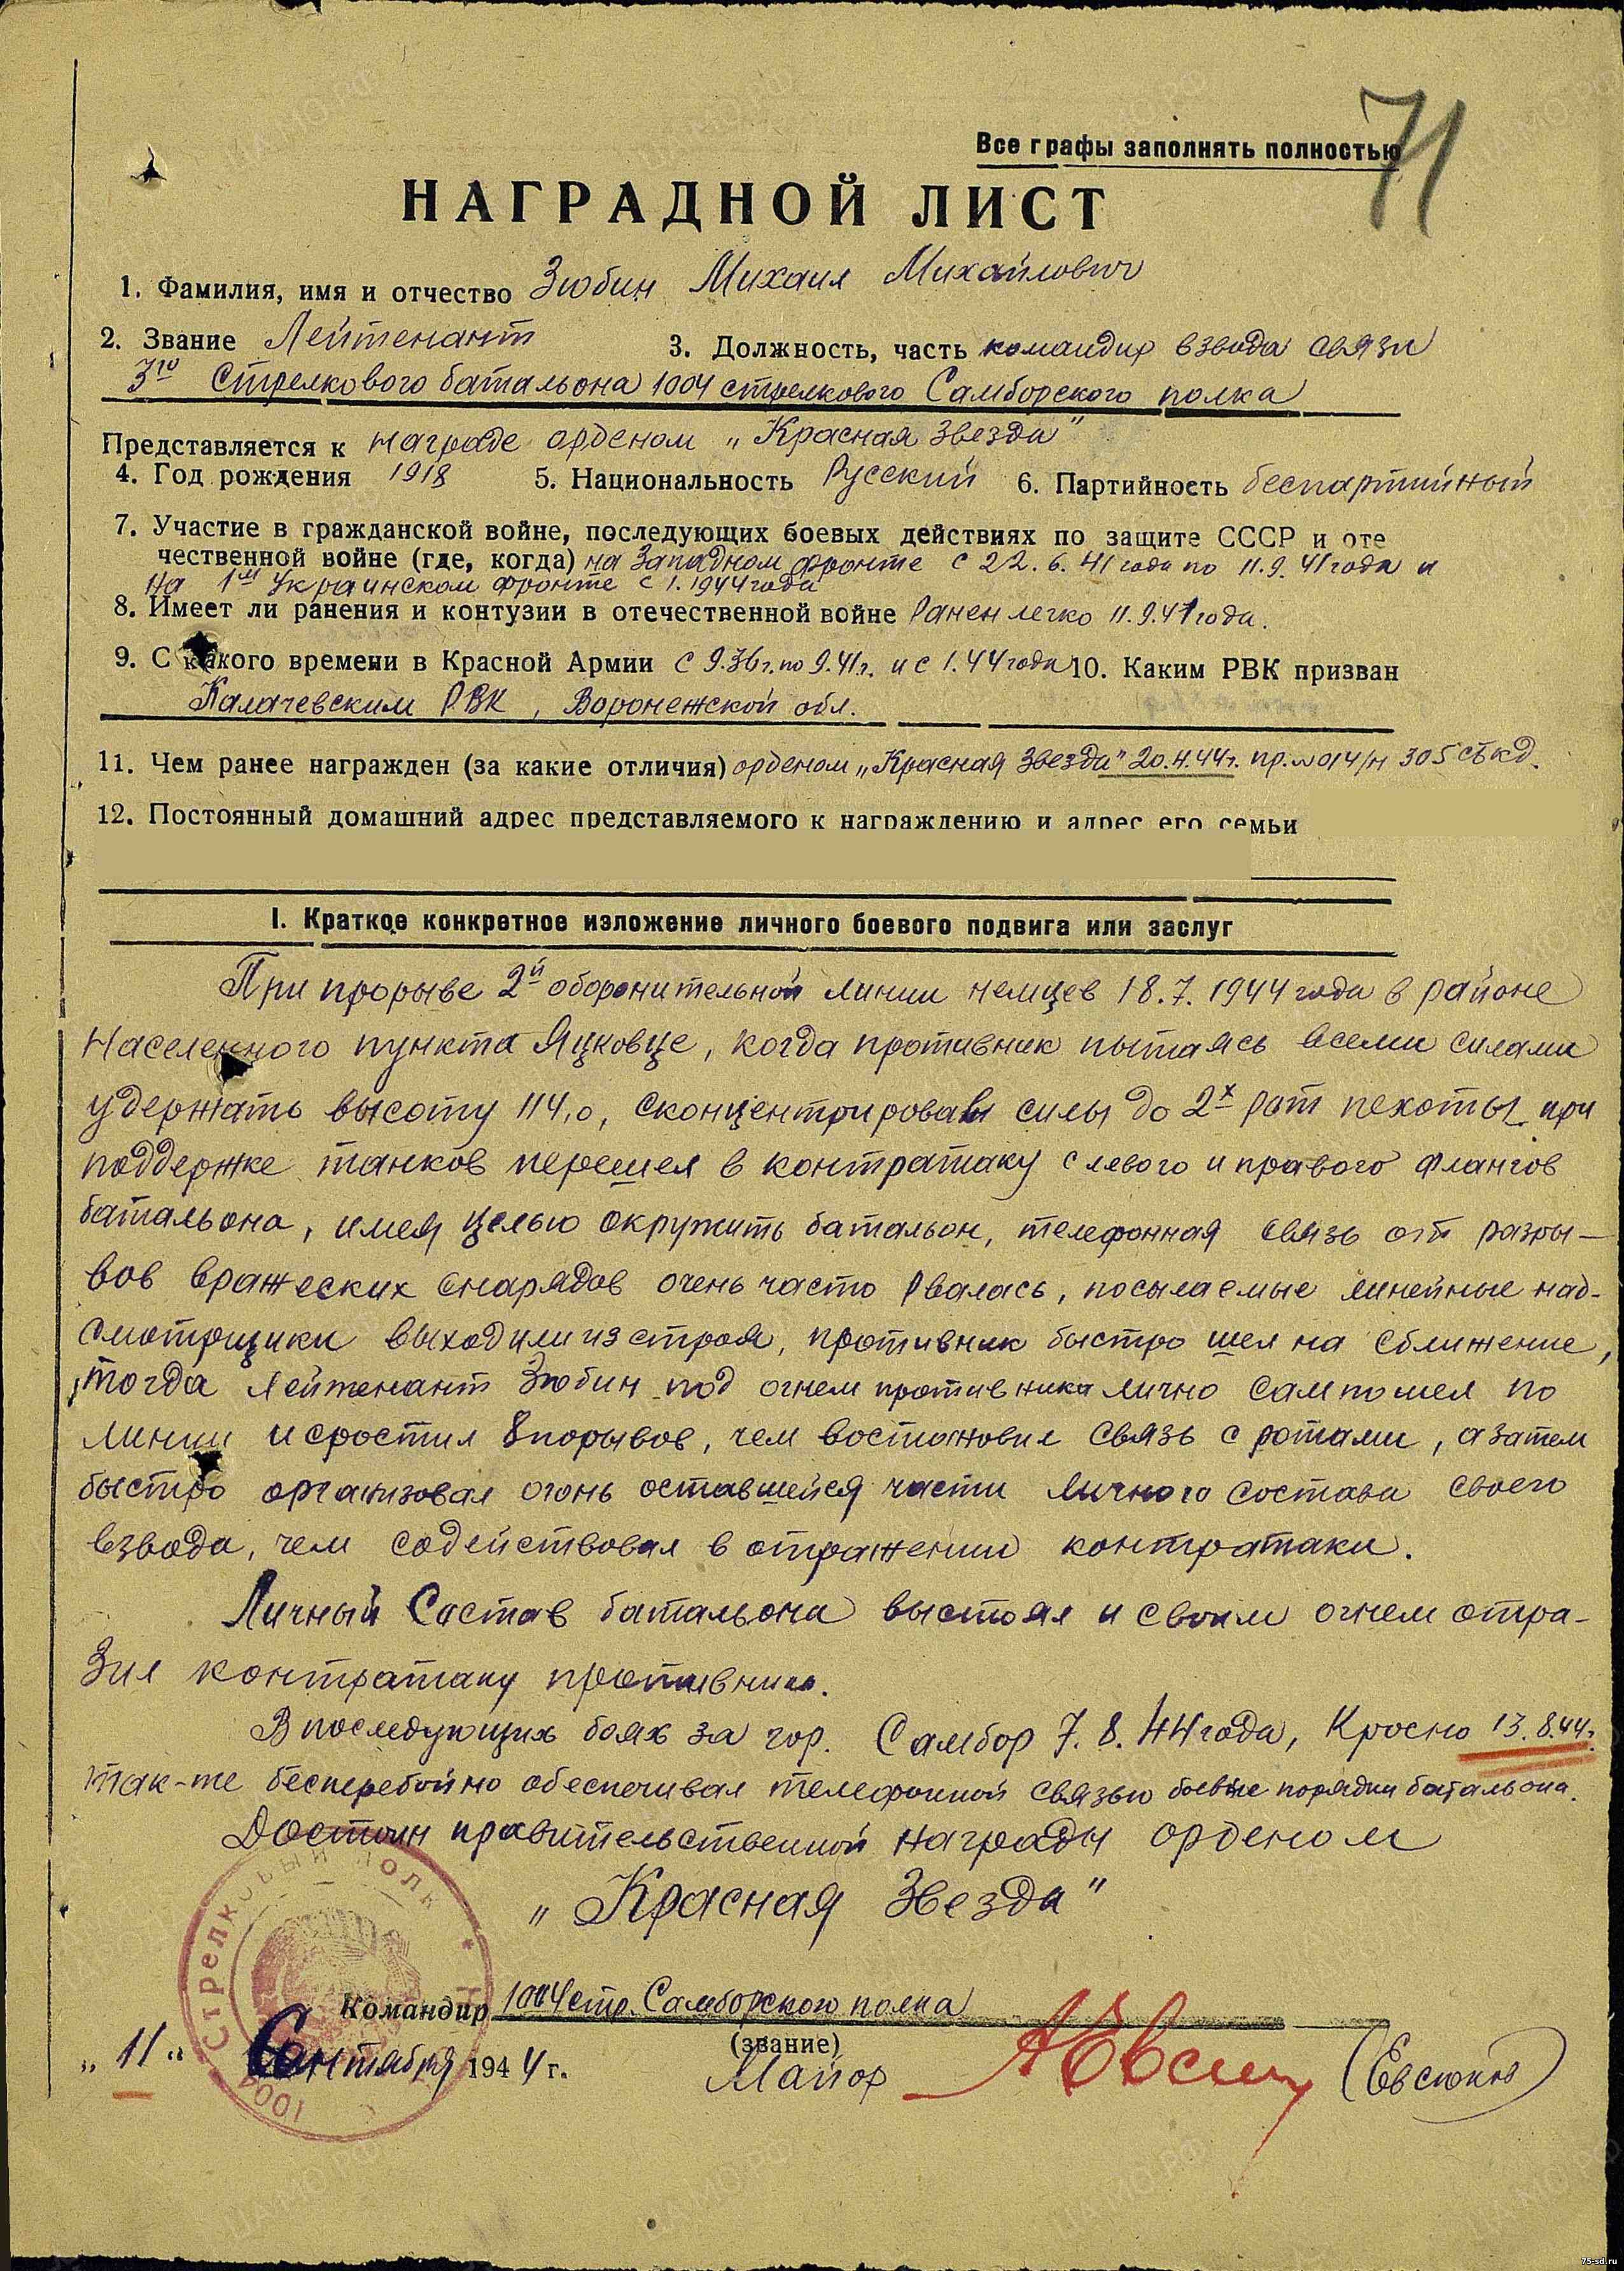 71
Все графы заполнять полностью
НАГРАДНОЙ ЛИСТ
1. Фамилия, имя и отчество Зюбин Михаил Михайлович
2. Звание Лейтенант 3. Должность, часть командир взвода связи
3го Стрелкового батальона 1004 стрелкового Самборского полка
Представляется к награде орденом „Красная Звезда"
4. Год рождения 1918 5. Национальность Русский 6. Партийность беспартийный
7. Участие в гражданской войне, последующих боевых действиях по защите СССР и оте
чественной войне (где, когда) на Западном фронте с 22.6.41 года по 11.9.41 года и
на 1м Украинском фронте с 1.1944 года
8. Имеет ли ранения и контузии в отечественной войне Ранен легко 11.9.41 года.
9. С какого времени в Красной Армии с 9.36г. по 9.41г. и с 1.44 года 10. Каким РВК призван
Калачевским РВК, Воронежской обл.
11. Чем ранее награжден (за какие отличия) орденом „Красная Звезда" 20.4.44г. пр. № 014/н 305 сткд.
12. Постоянный домашний адрес представляемого к награждению и адрес его семьи
I. Краткое конкретное изложение личного боевого подвига или заслуг
При прорыве 2й оборонительной линии немцев 18.7.1944 года в районе
Населенного пункта Яцковце, когда противник пытаясь всеми силами
удержать высоту 114,0, сконцентрировав силы до 2х рот пехоты при
поддержке танков перешел в контратаку с левого и правого флангов
батальона, имея целью окружить батальон, телефонная связь от разры-
вов вражеских снарядов очень часто рвалась, посылаемые линейные над-
смотрщики выходили из строя, противник быстро шел на сближение,
тогда лейтенант Зюбин под огнем противника лично сам пошел по
линии и сростил 8 порывов, чем востановил связь с ротами, а затем
быстро организовал огонь оставшейся части личного состава своего
взвода, чем содействовал в отражении контратаки.
Личный Состав батальона выстоял и своим огнем отра-
зил контратаку противника.
В последующих боях за гор. Самбор 7.8.44 года, Кросно 13.8.44г.
так-же бесперебойно обеспечивал телефонной связью боевые порядки батальона.
Достоин правительственной награды орденом
„Красная Звезда"
Стрелковый полк * 1004
Командир 1004 стр. Самборского полка
(звание)
„11" Сентября 1944 г. Майор АЕвсю (Евсюков)
75-sd.ru